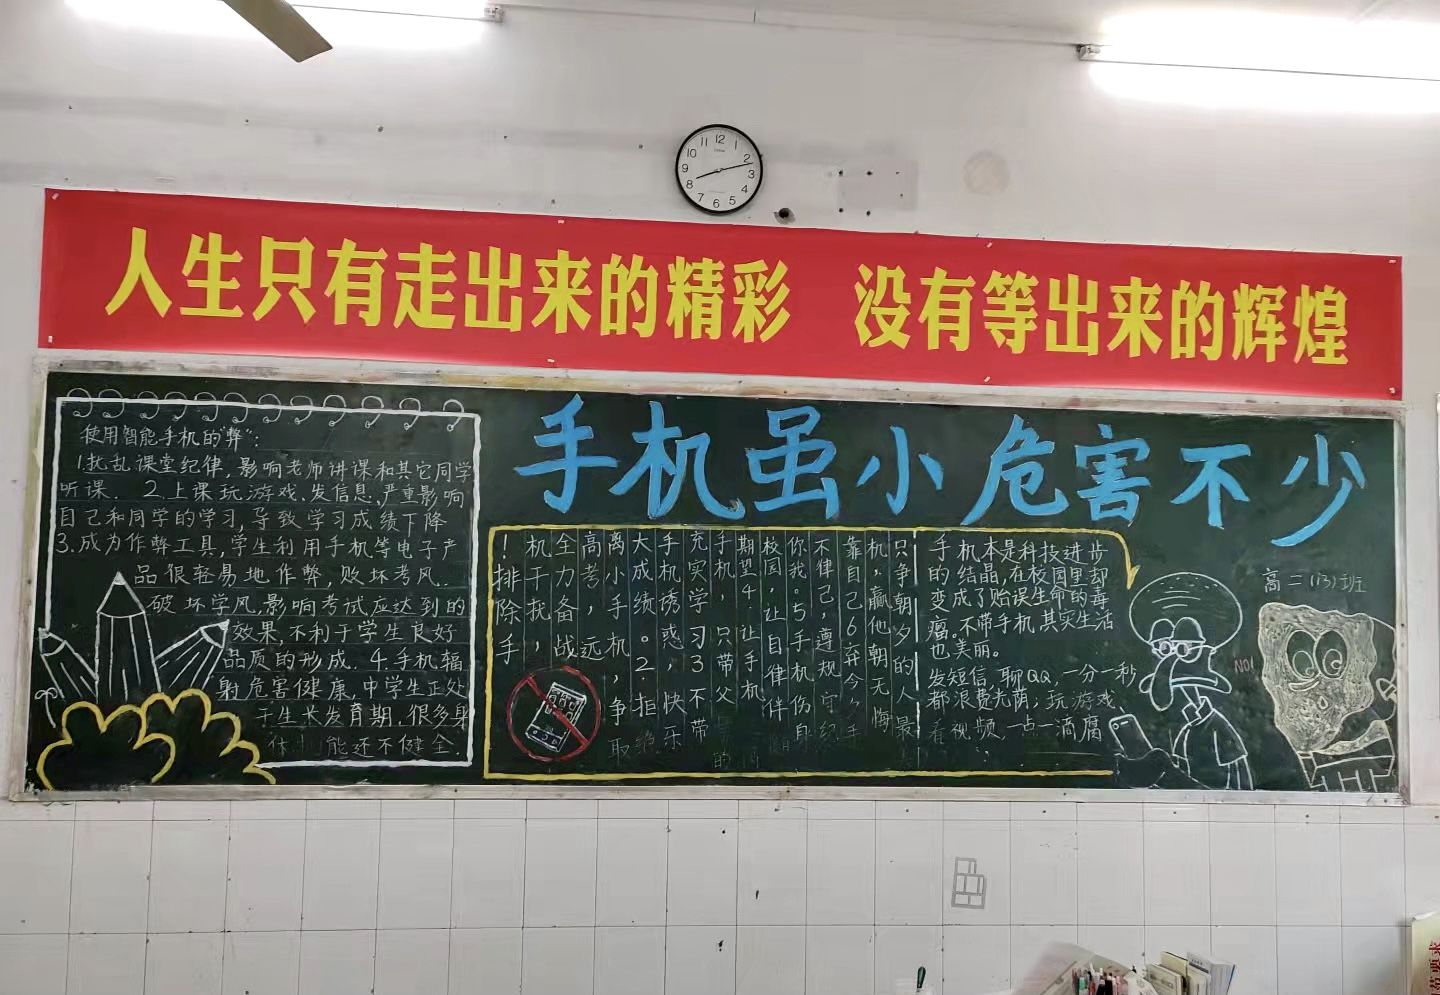 人生只有走出来的精彩 没有等出来的辉煌
手机虽小危害不少
使用智能手机的"弊":
1.扰乱课堂纪律,影响老师讲课和其它同学
听课. 2.上课玩游戏.发信息.严重影响
自己和同学的学习,导致学习成绩下降
3.成为作弊工具,学生利用手机等电子产
品很轻易地作弊,败坏考风.
破坏学风,影响考试应达到的
效果,不利于学生良好
品质的形成. 4.手机辐
射危害健康,中学生正处
于生长发育期,很多身
体 能还不健全.
！排除手
机干扰，
全力备战
高考，远
离小手机，争取
大成绩。2.拒绝
手机诱惑，快乐
充实学习3不带
手机，只带父母的
期望4.让手机
校园，让自律伴
你我。5手机伤身
不律己，遵规守纪
靠自己6弃今 手
机，赢他朝无悔
只争朝夕的人最
手机本是科技进步
的结晶,在校园里却
变成了贻误生命的毒
瘤。不带手机,其实生活
也美丽。
发短信,聊QQ,一分一秒
都浪费光荫,玩游戏、
看视频,一点一滴腐
高二(13)班
NO!
12
1
2
3
4
5
6
7
8
9
10
11